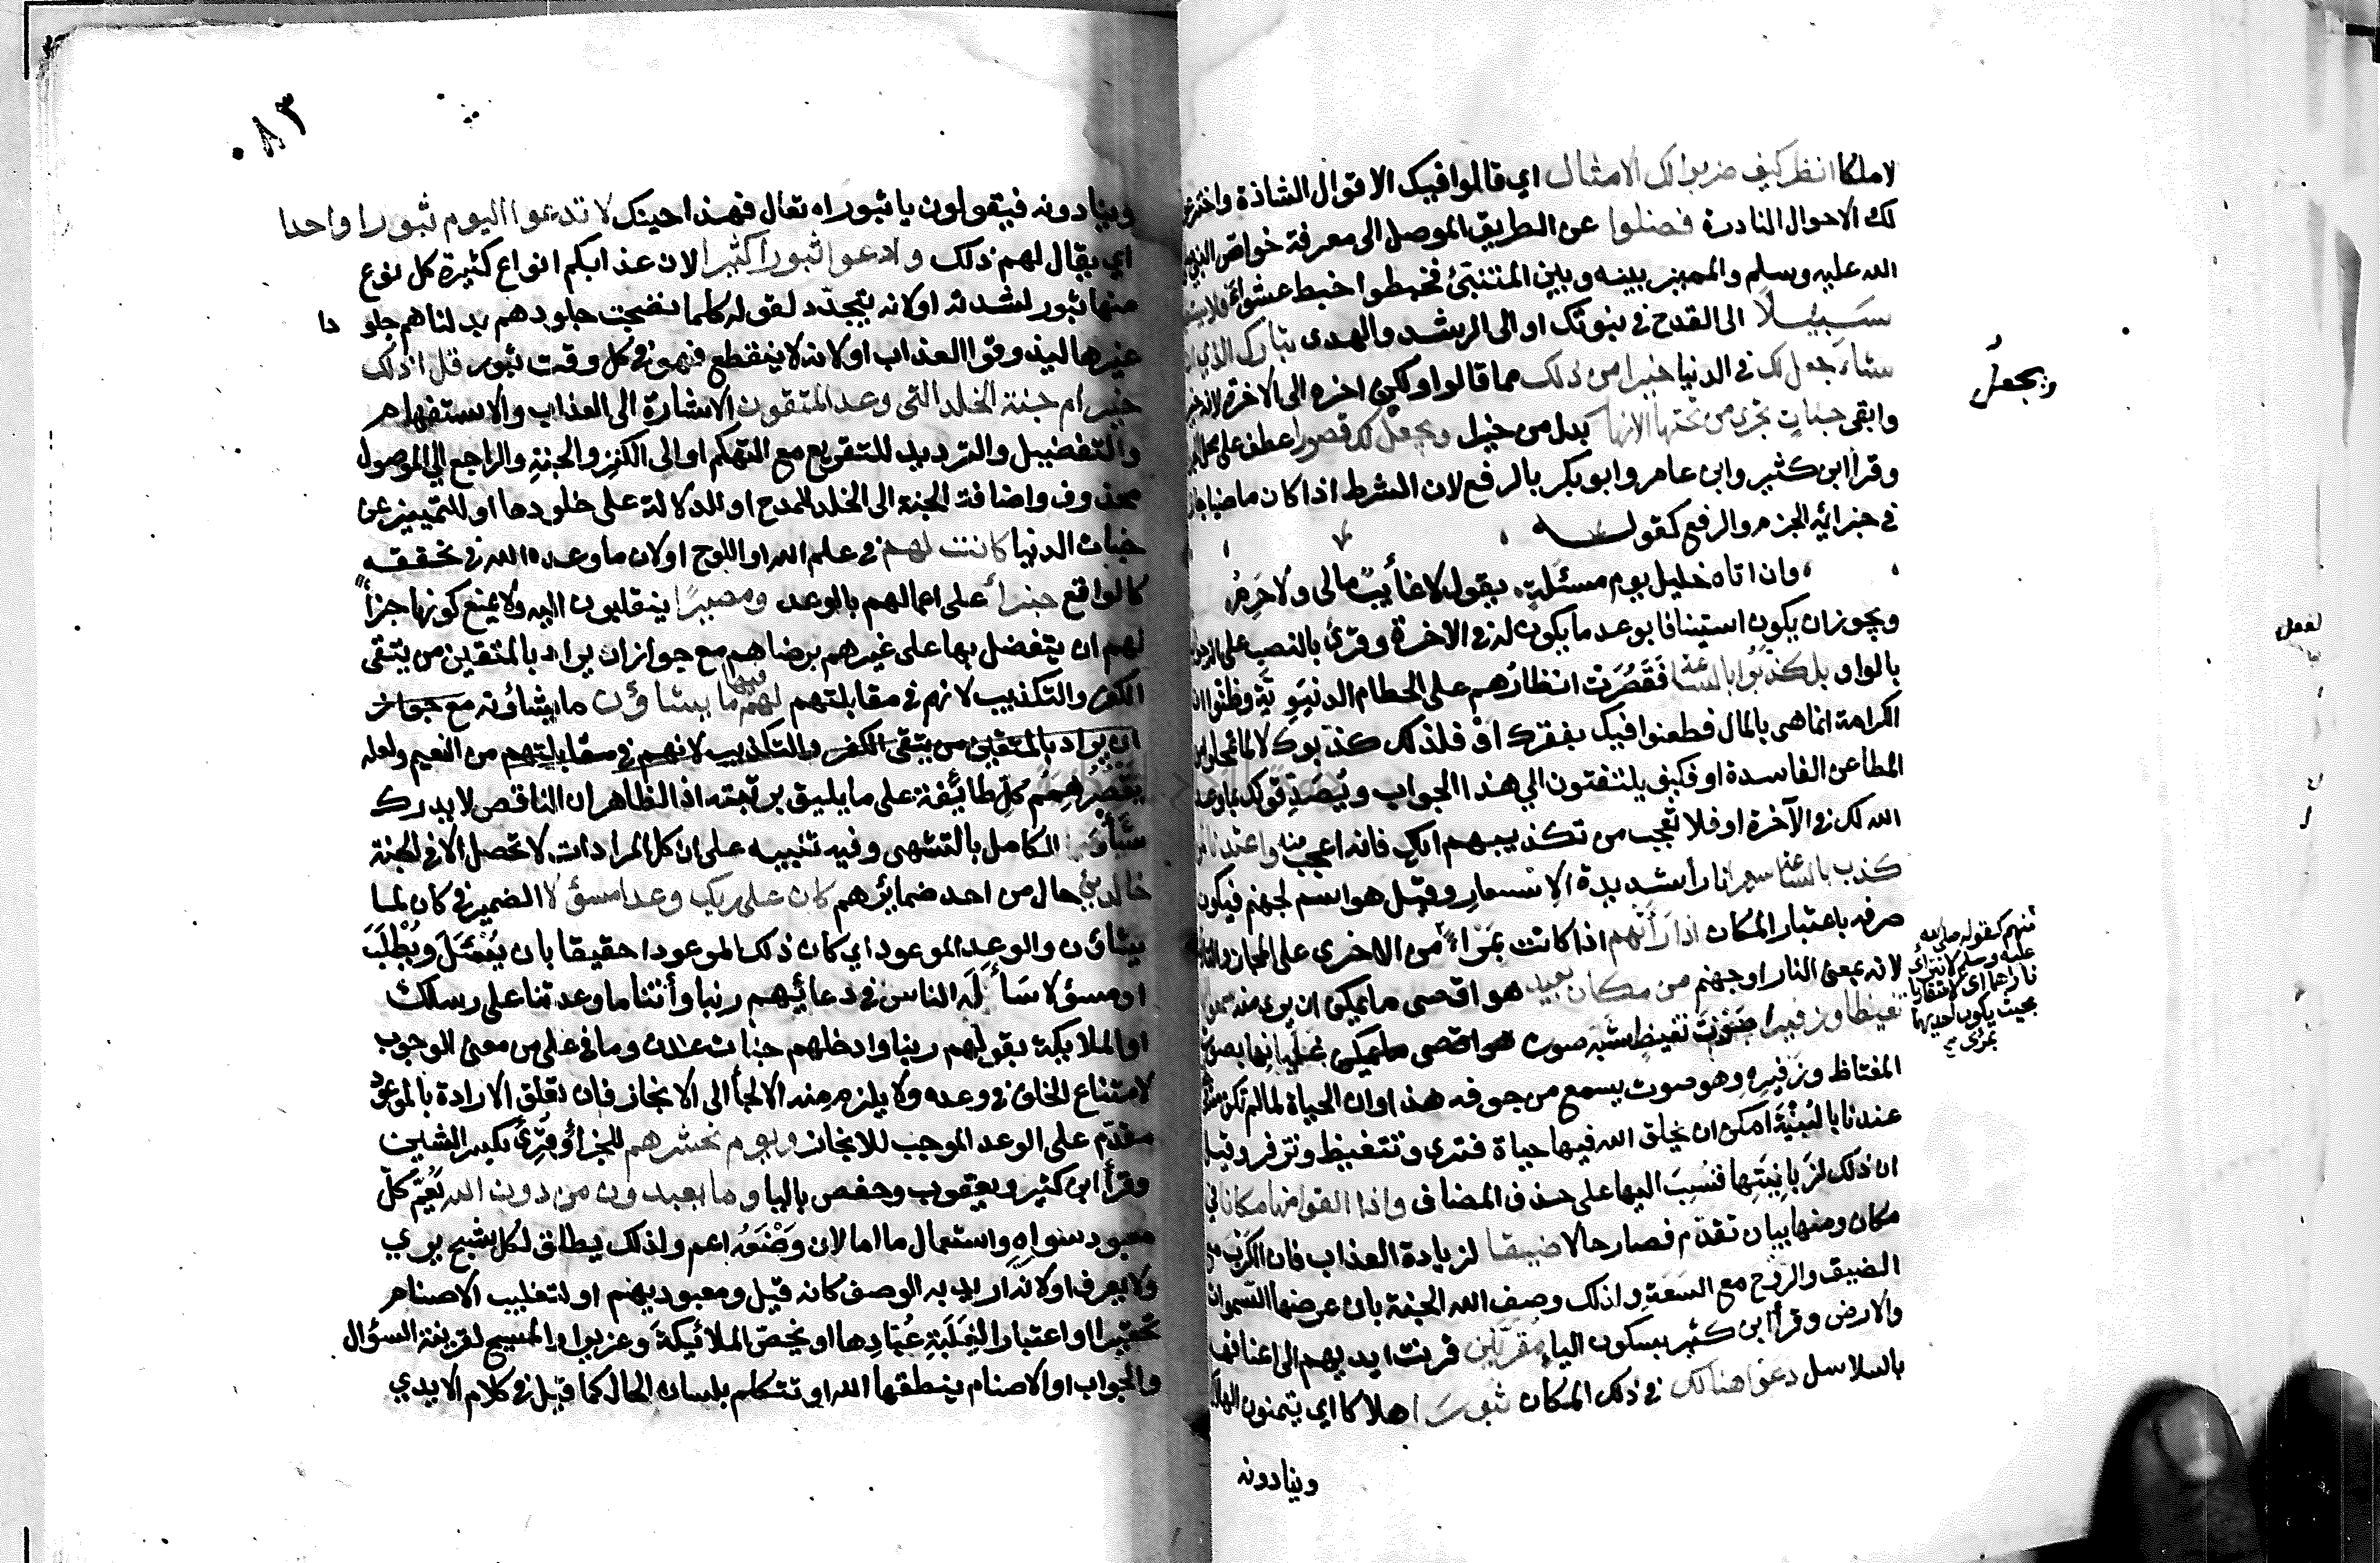 لا ملكا انظر كيف ضربوا لك الامثال اي قالوا فيك الاقوال الشاذة واخترعوا
لك الاحوال النادرة فضلوا عن الطريق الموصل الى معرفة خواص النبي
الله عليه وسلم والمميز بينه وبين المتنبئ فخبطوا خبط عشواء فلا
سبيلا الى القدح في نبوتك او الى الرشد والهدى تبارك الذي ان
شاء جعل لك في الدنيا خيرا من ذلك مما قالوا ولكن اخره الى الاخرة لانه خير
وابقى جنات تجري من تحتها الانهار بدل من خيرا ويجعل لك قصورا عطف على محل
وقرأ ابن كثير وابن عامر وابو بكر بالرفع لان الشرط اذا كان ماضيا جاز
في جزائه الجزم والرفع كقوله
وان اتاه خليل يوم مسئلة يقول لا غائب مالي ولا حرم
ويجوز ان يكون استينافا بوعد ما يكون له في الاخرة وقرئ بالنصب على
بالواو بل كذبوا بالساعة فقصرت انظارهم على الحطام الدنيوية وظنوا ان
الكرامة انما هي بالمال فطعنوا فيك بفقرك او فلذلك كذبوك لا لما تمحلوا من
المطاعن الفاسدة او فكيف يلتفتون الى هذا الجواب ويصدقونك بما وعد
الله لك في الآخرة او فلا تعجب من تكذيبهم اياك فانه اعجب منه واعتدنا لمن
كذب بالساعة سعيرا نارا شديدة الاسعار وقيل هو اسم لجهنم فيكون
صرفه باعتبار المكان اذا رأتهم اذا كانت بمراء من الاخرى على المجاز والتأنيث
لانه بمعنى النار او جهنم من مكان بعيد هو اقصى ما يمكن ان يرى منه سمعوا
تغيظا وزفيرا صوت تغيظ شبه صوت هو اقصى ما يمكن غليانها بصوت
المغتاظ وزفيره وهو صوت يسمع من جوفه هذا وان الحياة لما لم تكن مشروطة
عندنا بالبنية امكن ان يخلق الله فيها حياة فترى وتتغيظ وتزفر وقيل
ان ذلك لزبانيتها فنسب اليها على حذف المضاف واذا القوا منها مكانا في
مكان ومنها بيان تقدم فصار حالا ضيقا لزيادة العذاب فان الكرب مع
الضيق والروح مع السعة ولذلك وصف الله الجنة بان عرضها السموات
والارض وقرأ ابن كثير بسكون الياء مقرنين قرنت ايديهم الى اعناقهم
بالسلاسل دعوا هنالك في ذلك المكان ثبورا هلاكا اي يتمنون الهلاك
وينادونه
ويجعل
منهم كقوله صلى الله
عليه وسلم لا تتراءى
ناراهما اي لا تتقاربا
بحيث يكون احديهما
بمرئ
٨٣
وينادونه فيقولون يا ثبوراه تعال فهذا حينك لا تدعوا اليوم ثبورا واحدا
اي يقال لهم ذلك وادعوا ثبورا كثيرا لان عذابكم انواع كثيرة كل نوع
منها ثبور لشدته او لانه يتجدد لقوله كلما نضجت جلودهم بدلناهم جلودا
غيرها ليذوقوا العذاب او لانه لا ينقطع فهو في كل وقت ثبور قل اذلك
خير ام جنة الخلد التي وعد المتقون الاشارة الى العذاب والاستفهام
والتفضيل والترديد للتقريع مع التهكم او الى الكنز والجنة والراجع الى الموصول
محذوف واضافة الجنة الى الخلد للمدح او للدلالة على خلودها او للتمييز عن
جنات الدنيا كانت لهم في علم الله او اللوح او لان ما وعده الله في تحققه
كالواقع جزاء على اعمالهم بالوعد ومصيرا ينقلبون اليه ولا يمنع كونها جزاء
لهم ان يتفضل بها على غيرهم برضاهم مع جواز ان يراد بالمتقين من يتقى
الكفر والتكذيب لانهم في مقابلتهم لهم فيها ما يشاؤن ما يشاؤنه مع جواز
ان يراد بالمتقين من يتقى الكفر والتكذيب لانهم في مقابلتهم من النعيم ولعله
يقصر همم كل طائفة على ما يليق برتبته اذ الظاهر ان الناقص لا يدرك
شأو الكامل بالتشهي وفيه تنبيه على ان كل المرادات لا تحصل الا في الجنة
خالدين حال من احد ضمائرهم كان على ربك وعدا مسؤلا الضمير في كان لما
يشاؤن والوعد الموعود اي كان ذلك الموعود احقيقا بان يسئل ويطلب
او مسؤلا سأله الناس في دعائهم ربنا وأتنا ما وعدتنا على رسلك
او الملايكة بقولهم ربنا وادخلهم جنات عدن وما في على من معنى الوجوب
لامتناع الخلف في وعده ولا يلزم منه الالجأ الى الانجاز فان تعلق الارادة بالموعود
مقدم على الوعد الموجب للانجاز ويوم نحشرهم للجزاء وقرئ بكسر الشين
وقرأ ابن كثير ويعقوب وحفص باليا وما يعبدون من دون الله يعم كل
معبود سواه واستعمال ما اما لان وضعه اعم ولذلك يطلق لكل شبح يرى
ولا يعرف او لانه اريد به الوصف كانه قيل ومعبوديهم او لتغليب الاصنام
تحقيرا او اعتبارا لغلبة عبادها او يخص الملائيكة وعزيرا والمسيح لقرينة السؤال
والجواب او الاصنام ينطقها الله او تتكلم بلسان الحال كما قيل في كلام الايدي